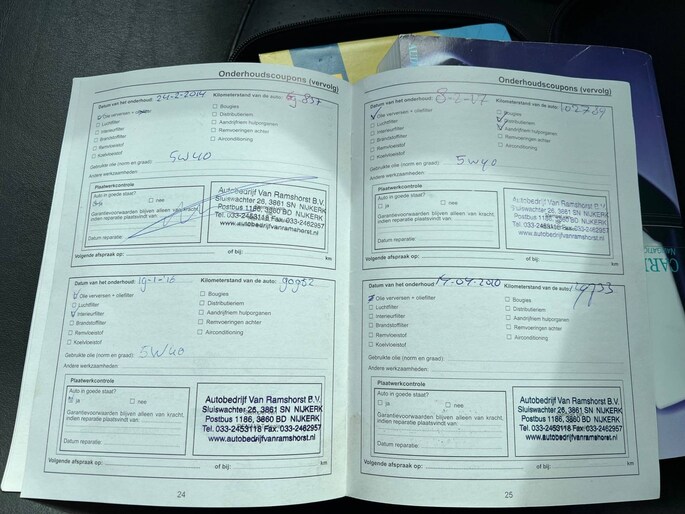 Onderhoudscoupons (vervolg)
Datum van het onderhoud: 24-2-2014 Kilometerstand van de auto:
Olie verversen + oliefilter
Luchtfilter
Interieurfilter
Brandstoffilter
Remvloeistof
Koelvloeistof
Bougies
Distributieriem
Aandrijfriem hulporganen
Remvoeringen achter
Airconditioning
Gebruikte olie (norm en graad): 5W40
Andere werkzaamheden:
Plaatwerkcontrole
Auto in goede staat?
ja nee
Garantievoorwaarden blijven alleen van kracht,
indien reparatie plaatsvindt van:
Datum reparatie:
Autobedrijf Van Ramshorst B.V.
Sluiswachter 26, 3861 SN NIJKERK
Postbus 1186, 3860 BD NIJKERK
Tel. 033-2453118 Fax: 033-2462957
www.autobedrijfvanramshorst.nl
Volgende afspraak op: of bij: km
Datum van het onderhoud: Kilometerstand van de auto: 90962
Olie verversen + oliefilter
Luchtfilter
Interieurfilter
Brandstoffilter
Remvloeistof
Koelvloeistof
Bougies
Distributieriem
Aandrijfriem hulporganen
Remvoeringen achter
Airconditioning
Gebruikte olie (norm en graad): 5W40
Andere werkzaamheden:
Plaatwerkcontrole
Auto in goede staat?
ja nee
Garantievoorwaarden blijven alleen van kracht,
indien reparatie plaatsvindt van:
Datum reparatie:
Autobedrijf Van Ramshorst B.V.
Sluiswachter 26, 3861 SN NIJKERK
Postbus 1186, 3860 BD NIJKERK
Tel. 033-2453118 Fax: 033-2462957
www.autobedrijfvanramshorst.nl
Volgende afspraak op: of bij: km
24
Onderhoudscoupons (vervolg)
Datum van het onderhoud: 8-2-17 Kilometerstand van de auto:
Olie verversen + oliefilter
Luchtfilter
Interieurfilter
Brandstoffilter
Remvloeistof
Koelvloeistof
Bougies
Distributieriem
Aandrijfriem hulporganen
Remvoeringen achter
Airconditioning
Gebruikte olie (norm en graad): 5W40
Andere werkzaamheden:
Plaatwerkcontrole
Auto in goede staat?
ja nee
Garantievoorwaarden blijven alleen van kracht,
indien reparatie plaatsvindt van:
Datum reparatie:
Autobedrijf Van Ramshorst B.V.
Sluiswachter 26, 3861 SN NIJKERK
Postbus 1186, 3860 BD NIJKERK
Tel. 033-2453118 Fax: 033-2462957
www.autobedrijfvanramshorst.nl
Volgende afspraak op: of bij: km
Datum van het onderhoud: 14-04-2020 Kilometerstand van de auto:
Olie verversen + oliefilter
Luchtfilter
Interieurfilter
Brandstoffilter
Remvloeistof
Koelvloeistof
Bougies
Distributieriem
Aandrijfriem hulporganen
Remvoeringen achter
Airconditioning
Gebruikte olie (norm en graad):
Andere werkzaamheden:
Plaatwerkcontrole
Auto in goede staat?
ja nee
Garantievoorwaarden blijven alleen van kracht,
indien reparatie plaatsvindt van:
Datum reparatie:
Autobedrijf Van Ramshorst B.V.
Sluiswachter 26, 3861 SN NIJKERK
Postbus 1186, 3860 BD NIJKERK
Tel. 033-2453118 Fax: 033-2462957
www.autobedrijfvanramshorst.nl
Volgende afspraak op: of bij: km
25